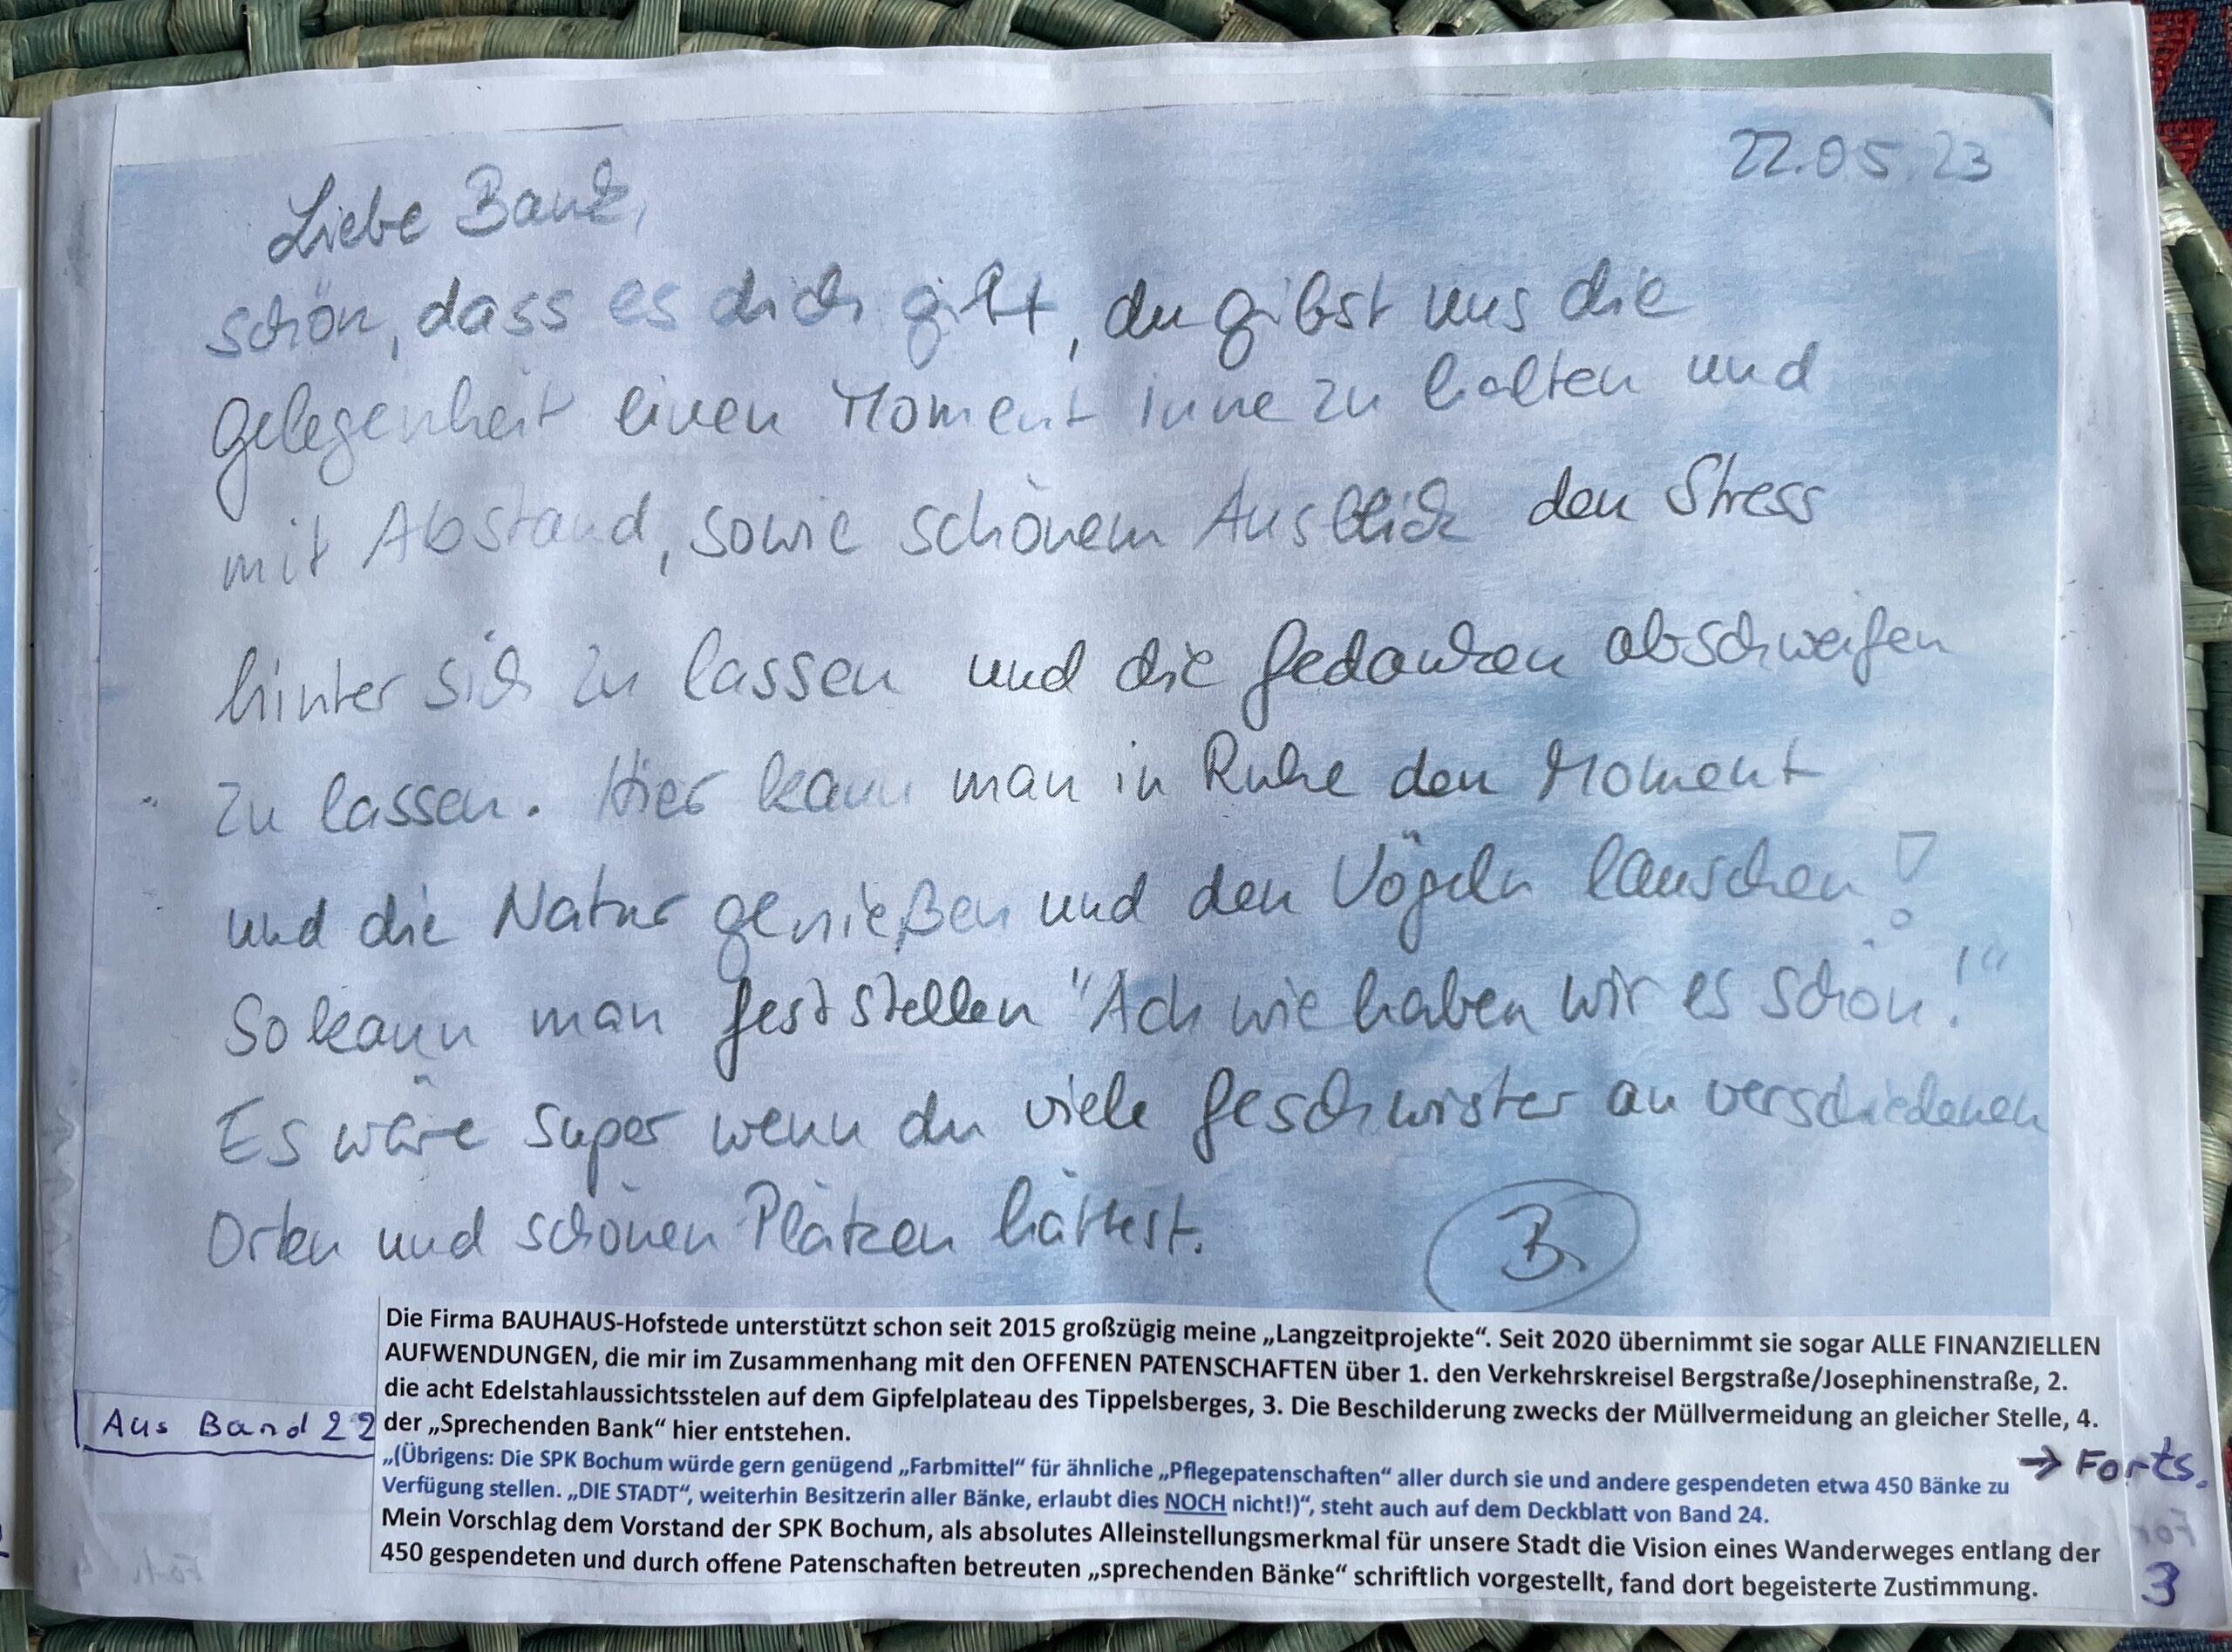 22.05.23
Liebe Bank,
schön, dass es dich gibt, du gibst uns die
Gelegenheit einen Moment inne zu halten und
mit Abstand, sowie schönem Ausblick den Stress
hinter sich zu lassen und die Gedanken abschweifen
zu lassen. Hier kann man in Ruhe den Moment
und die Natur genießen und den Vögeln lauschen!
So kann man feststellen "Ach wie haben wir es schön!"
Es wäre super wenn du viele Geschwister an verschiedenen
Orten und schönen Plätzen hättest.
B.
Die Firma BAUHAUS-Hofstede unterstützt schon seit 2015 großzügig meine „Langzeitprojekte“. Seit 2020 übernimmt sie sogar ALLE FINANZIELLEN
AUFWENDUNGEN, die mir im Zusammenhang mit den OFFENEN PATENSCHAFTEN über 1. den Verkehrskreisel Bergstraße/Josephinenstraße, 2.
die acht Edelstahlaussichtsstelen auf dem Gipfelplateau des Tippelsberges, 3. Die Beschilderung zwecks der Müllvermeidung an gleicher Stelle, 4.
der „Sprechenden Bank“ hier entstehen.
Aus Band 22
„(Übrigens: Die SPK Bochum würde gern genügend „Farbmittel“ für ähnliche „Pflegepatenschaften“ aller durch sie und andere gespendeten etwa 450 Bänke zu
Verfügung stellen. „DIE STADT“, weiterhin Besitzerin aller Bänke, erlaubt dies NOCH nicht!)“, steht auch auf dem Deckblatt von Band 24.
→ Forts.
Mein Vorschlag dem Vorstand der SPK Bochum, als absolutes Alleinstellungsmerkmal für unsere Stadt die Vision eines Wanderweges entlang der
450 gespendeten und durch offene Patenschaften betreuten „sprechenden Bänke“ schriftlich vorgestellt, fand dort begeisterte Zustimmung.
3